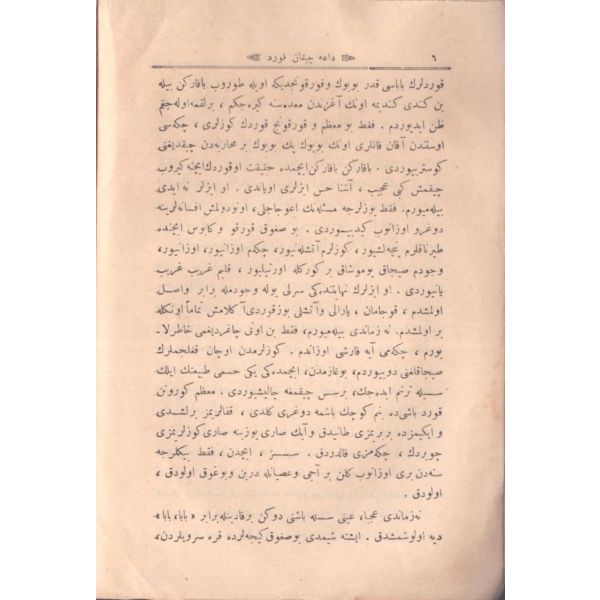 ٦ داغه چیقان قورد
قوردلرك باباسی قدر بویوك وقورقونجدیكه اویله طوروب باقاركن بیله
بن كندی كندیمه اونك آغزندن معده‌سنه كیره‌جكم ، برلقمه اوله‌جغم
ظن ایدیوردم . فقط بو معظم و قورقونج قوردك كوزلری ، چكه‌سی
اوستندن آقان قانلری اونك بویوك پك بویوك بر محاربه‌دن چیقدیغنی
كوستریوردی . باقاركن باقاركن ایچمده حقیقت اوقوردك ایچنه كیروب
چیقمش كبی عجیب ، آشنا حس ایزلری اویاندی . او ایزلر نه ایدی
بیله‌میورم . فقط یوزلرجه مسئله‌نك اعوجاجلی ، اونودولمش افسانه‌لرینه
دوغرو اوزانوب كیدییوردی . بو صغوق قورقو و كابوس ایچنده
طیرناقلرم پنچه‌لشیور ، كوزلرم آتشله‌نیور ، چكه‌م اوزانیور ، اوزانیور ،
وجودم صیجاق یوموشاق بر كوركله اورتیلیور ، قلبم غریب غریب
یانیوردی . او ایزلرك نهایتنده‌كی سرلی یوله وجودمله برابر واصل
اولمشدم ، قوجامان ، یارالی وآتشلی بوزقوردی آكلامش تماماً اونكله
بر اولمشدم . نه زماندی بیله‌میورم ، فقط بن اونی چاغردیغمی خاطرلا -
یورم ، چكه‌می آیه قارشی اوزاتدم . كوزلرمدن اوچان قغلجملرك
صیجاقلغنی دویبوردم ، بوغازمدن ، ایچمده‌كی یكی حسمی طبیعتك ایلك
سسیله ترنم ایده‌جك ، برسس چیقمغه چالیشیوردی . معظم كورونن
قورد باشی ده بنم كوچك باشمه دوغری كلدی ، قفالریمز برلشدی
و ایكیمزده بربریمزی طانیدق و آیك صاری یوزینه صاری كوزلریمزی
چویردك ، چكه‌مزی قالدردق . سسسز ، ایچدن ، فقط بیكلرجه
سنه‌دن بری اوزانوب كلن بر آجی وعصیانله درین وبوغوق اولودق ،
اولودق .
نه زماندی عجبا ، عینی سسله باشنی دوكن برقادینله برابر « بابا ، بابا »
دیه اولوشمشدق . ایشته شیمدی بوصغوق كیجه‌لرده قره سرویلردن ،